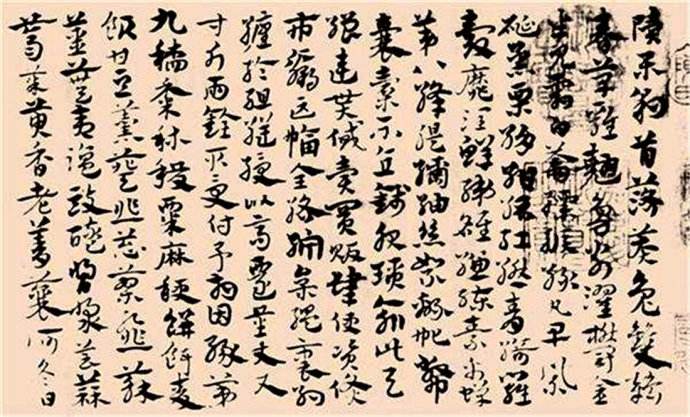 豹首落莫兔雙鶴
春草雞翹鳧翁濯鬱金
白縹
烝栗絹紺縉紅繎青綺羅
縠靡潤鮮綈雒縑練素帛蟬
第八絳緹絓紬絲絮綿
囊橐不直錢服瑣緰此與
繒連貰貸賣買販肆便資貨
市贏匹幅全綌紵枲縕裹約
纏綸組縌綬以高遷量丈尺
寸斤兩銓取受付予相因緣第
九稻黍秫稷粟麻秔餅餌麥
飯甘豆羹葵韭蔥蓼韰蘇
薑蕪荑鹽豉醯醬漿芸蒜
薺芥茱萸香老菁蘘何冬日